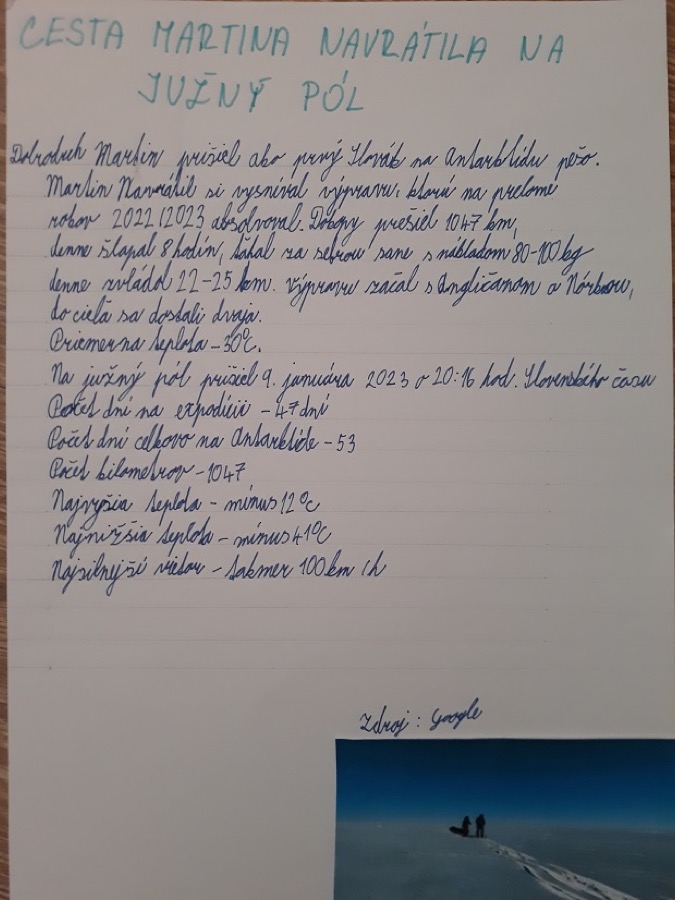 CESTA MARTINA NAVRÁTILA NA
JUŽNÝ PÓL
Dobrodruh Martin prišiel ako prvý Slovák na Antarktídu pešo.
Martin Navrátil si vysníval výpravu, ktorú na prelome
rokov 2022/2023 absolvoval. Dokopy prešiel 1047 km,
denne šlapal 8 hodín, ťahal za sebou sane s nákladom 80-100 kg
denne zvládol 22-25 km. Výpravu začal s Angličanom a Nórkou,
do cieľa sa dostali dvaja.
Priemerna teplota -30°C.
Na južný pól prišiel 9. januára 2023 o 20:16 hod. Slovenského času
Počet dní na expedícii - 47 dní
Počet dní celkovo na Antarktíde - 53
Počet kilometrov - 1047
Najvyšia teplota - mínus 12°C
Najnižšia teplota - mínus 41°C
Najsilnejší vietor - takmer 100 km/h
Zdroj: Google